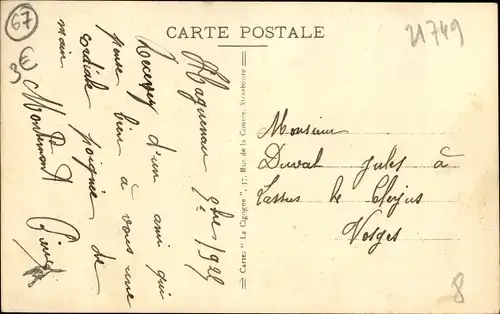 CARTE POSTALE
67
21749
Haguenau 9bre 1925
Recevez d'un ami qui
pense bien à vous une
cordiale poignée de
main
Pierre
Cartes " La Cigogne ", 17, Rue de la Course, Strasbourg
Monsieur
Duval Jules à
le Clerjus
Vosges
8